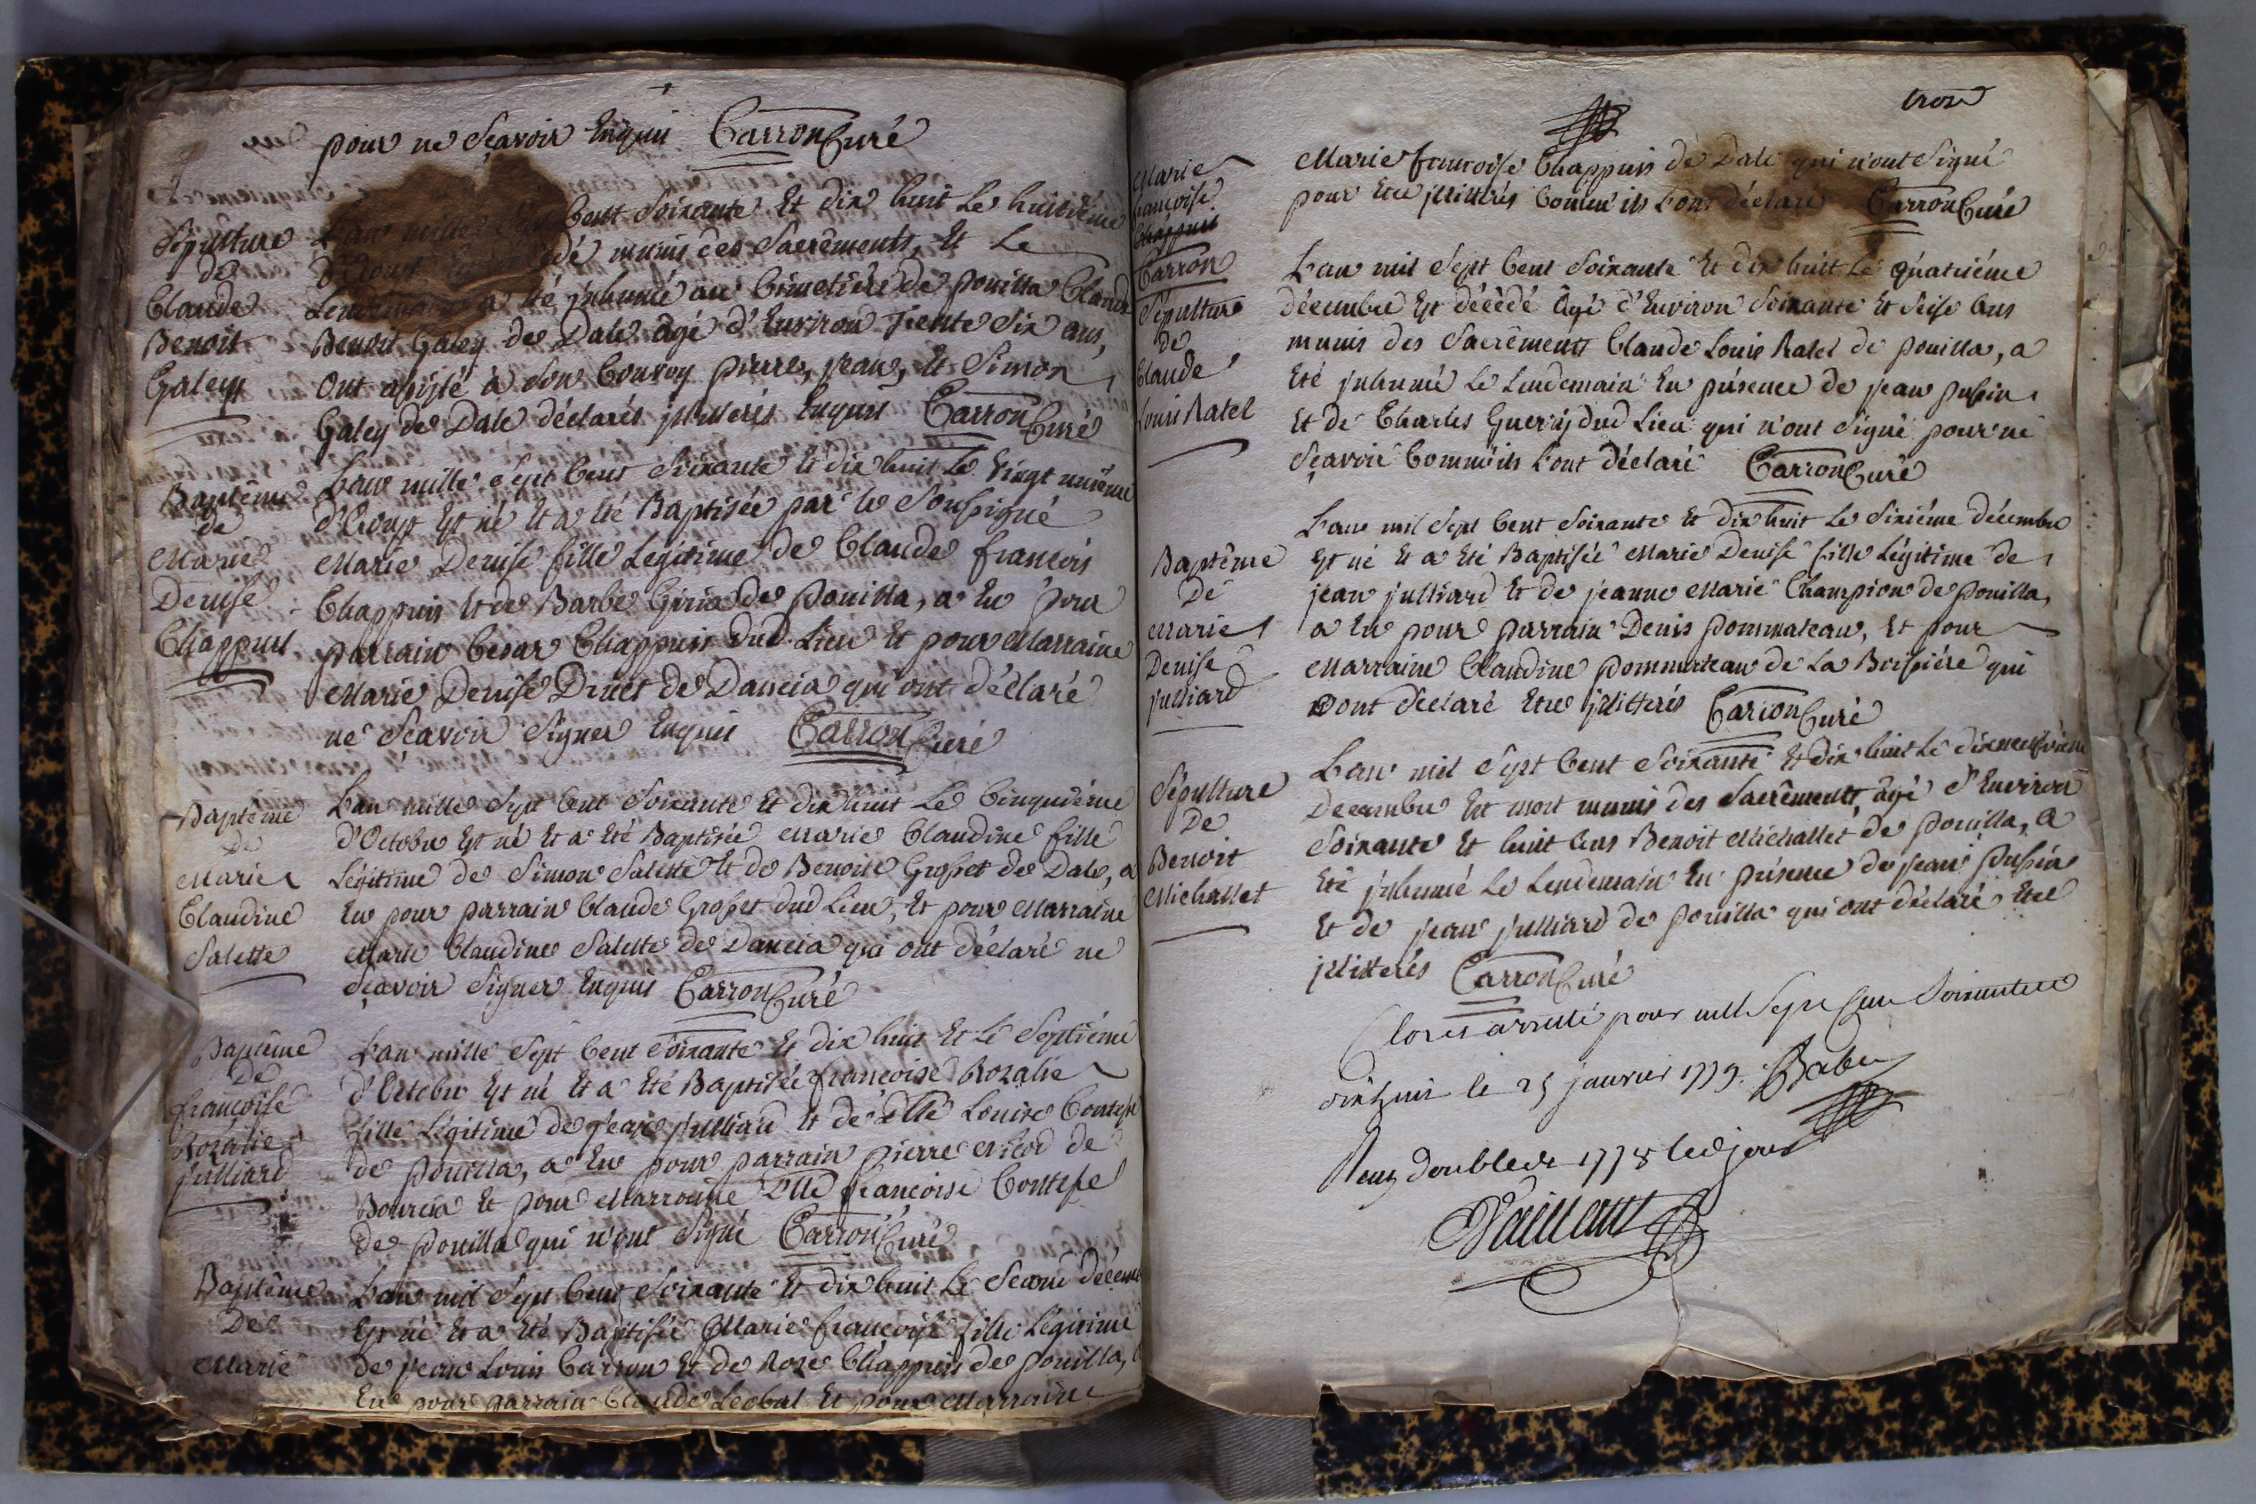 pour ne Sçavoir Enquis Carron Curé
Sépulture
de
Claude
Benoit
Galey
L'an mille Cent Soixante Et dix huit Le huitième
d'aout munis des Sacrêments, Et Le
Lendemain a Eté jnhumé au Cimetière de pouilla Claude
Benoit Galey de Dale âgé d'Environ Trente Six ans,
Ont assisté à Son Convoy pierre, jean, Et Simon
Galey de Dale déclarés jllitterés Enquis Carron Curé
Baptême
de
Marie
Denise
Chappuis
L'an mille Sept Cent Soixante Et dix huit Le Vingt unième
d'aoust Est né Et a Eté Baptisée par le Soussigné
Marie Denise fille Légitime de Claude françois
Chappuis Et de Barbe de Pouilla, a Eu pour
parrain Cesar Chappuis dud. Lieu Et pour Marraine
Marie Denise de Dancia qui ont déclaré
ne Sçavoir Signer Enquis Carron Curé
Baptême
De
Marie
Claudine
Salette
L'an mille Sept Cent Soixante Et dix huit Le Cinquième
d'Octobre Est né Et a Eté Baptisée Marie Claudine fille
Légitime de Simon Salette Et de Benoite Grosset de Dale, a
Eu pour parrain Claude Grosset dud Lieu, Et pour Marraine
Marie Claudine Salette de Dancia qui ont déclaré ne
Sçavoir Signer Enquis Carron Curé
Baptême
De
françoise
Rozalie
julliard
L'an mille Sept Cent Soixante Et dix huit Et Le Septième
d'Octobre Est né Et a Eté Baptisée françoise Rozalie
fille Légitime de jean julliard Et de dlle Louise Contesse
de pouilla, a Eu pour parrain pierre Nicod de
Bourcia Et pour Marraine dlle françoise Contesse
de pouilla qui n'ont Signé Carron Curé
Baptême
De
Marie
L'an mil Sept Cent Soixante Et dix huit Le Second décembre
Est né Et a Eté Baptisée Marie françoise fille Légitime
de jean Louis Carron Et de Rose Chappuis de pouilla, a
Eu pour parrain Claude Et pour Marraine
trois
Marie
françoise
Chappuis
Carron
Marie françoise Chappuis de Dale qui n'ont Signé
pour Etre jllittérés Comm'ils L'ont déclaré Carron Curé
Sépulture
De
Claude
Louis Ratel
L'an mil Sept Cent Soixante Et dix huit Le quatrième
décembre Est décèdé âgé d'Environ Soixante Et Seise ans
munis des Sacrêments Claude Louis Ratel de pouilla, a
Eté jnhumé Le Lendemain En présence de jean
Et de Charles Guerry dud Lieu qui n'ont Signé pour ne
Sçavoir Comm'ils L'ont déclaré Carron Curé
Baptême
De
Marie
Denise
julliard
L'an mil Sept Cent Soixante Et dix huit Le Sixième décembre
Est né Et a Eté Baptisée Marie Denise fille Légitime de
jean julliard Et de jeanne Marie Champion de pouilla,
a Eu pour parrain Denis pommateau, Et pour
Marraine Claudine pommateau de La Boissière qui
ont déclaré Etre jllitterés Carron Curé
Sépulture
De
Benoit
Michallet
L'an mil Sept Cent Soixante Et dix huit Le dixneuvième
Decembre Est mort munis des Sacrêments âgé d'Environ
Soixante Et huit ans Benoit Michallet de pouilla, a
Eté jnhumé Le Lendemain En présence de jean
Et de jean julliard de pouilla qui ont déclaré Etre
jllitterés Carron Curé
Clos et arresté pour mil Sept Cent Soixante
dixhuit le 25 janvier 1779.
Reçu double de 1778 led jour
Vaillant